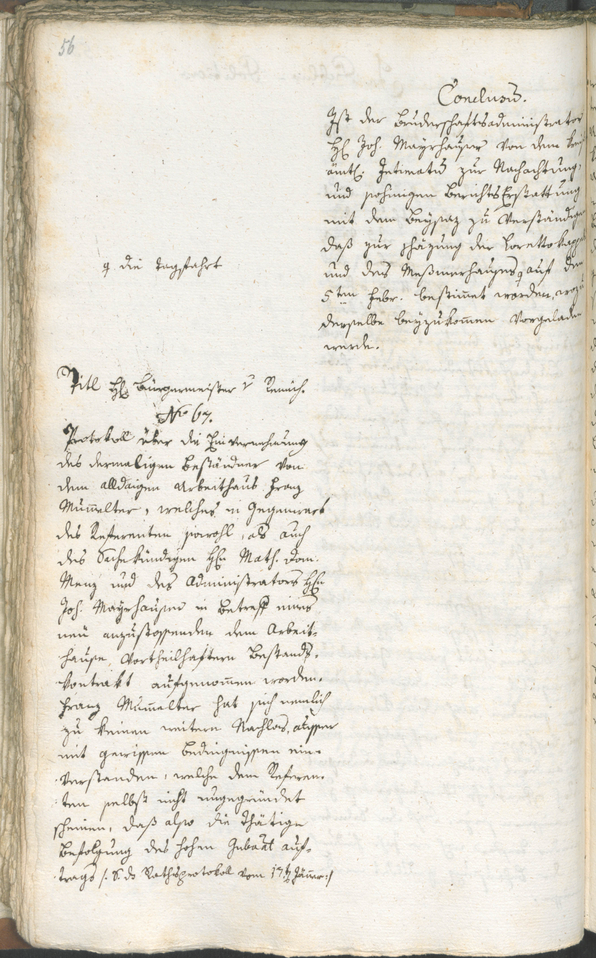 56
Conclusum.
Ist der Bruderschaftsadministrator
H. Joh. Mayrhauser von dem
ämtl. Intimatum zur Nachachtung
und sohinigen Berichts Erstattung
mit dem Beysaz zu Verständigen
daß zur schäzung der Lorettokapell
und des Meßmerhauses, auf den
5ten Febr. bestimmet worden, wozu
derselbe beyzukommen Vorgeladen
werde.
die Tagsfahrt
Titl H. Bürgermeister
No 67.
Protokoll über die Einvernehmung
des dermaligen Beständner von
dem alldaigen Arbeithaus Franz
Mum̄elter, welches in Gegenwart
des Referenten sowohl, als auch
des Sachekündigen H. Math. Dom.
Menz und des Administrators H.
Joh. Mayrhauser in Betreff eines
neu anzustossenden dem Arbeit-
hause Vortheilhaftern Bestands-
kontrakt aufgenom̄en worden.
Franz Mum̄elter hat sich nemlich
zu keinen weitern Nachlas, ausser
mit gewissen bedingnissen ein-
verstanden, welche dem Referen-
ten selbst nicht ungegründet
scheinen, daß also die thätige
Befolgung des hohen Gubal auf-
trags /: S. ds Rathsprotokol vom 17 Jäner :/